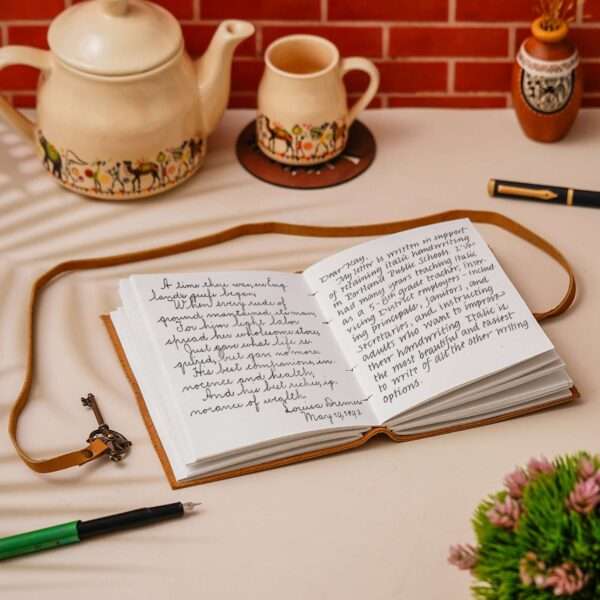 A time there was, ere Eng
land's griefs began,
When every rude of
ground maintained its man,
For him light labor
spread her wholesome store,
Just gave what life re
quired, but gave no more:
His best companions, in
nocence and health,
And his best riches, ig
norance of wealth.
Louisa
May 19, 1892
Dear Kay,
My letter is written in support
of retaining Italic handwriting
in Portland Public Schools. I've
had many years teaching Italic
as a 5-8th grade teacher, inser-
vicing District employees - includ
ing principals, janitors, and
secretaries, and instructing
adults who want to improve
their handwriting. Italic is
the most beautiful and easiest
to write of all the other writing
options.